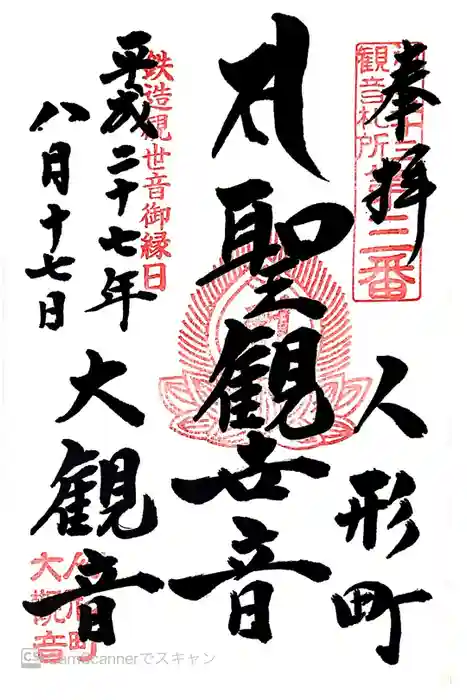 奉拝
観音札所第三番
人形町
聖観世音
鉄造観世音御縁日
平成二十七年
八月十七日
大観音
人形町
大観音
CS CamScannerでスキャン